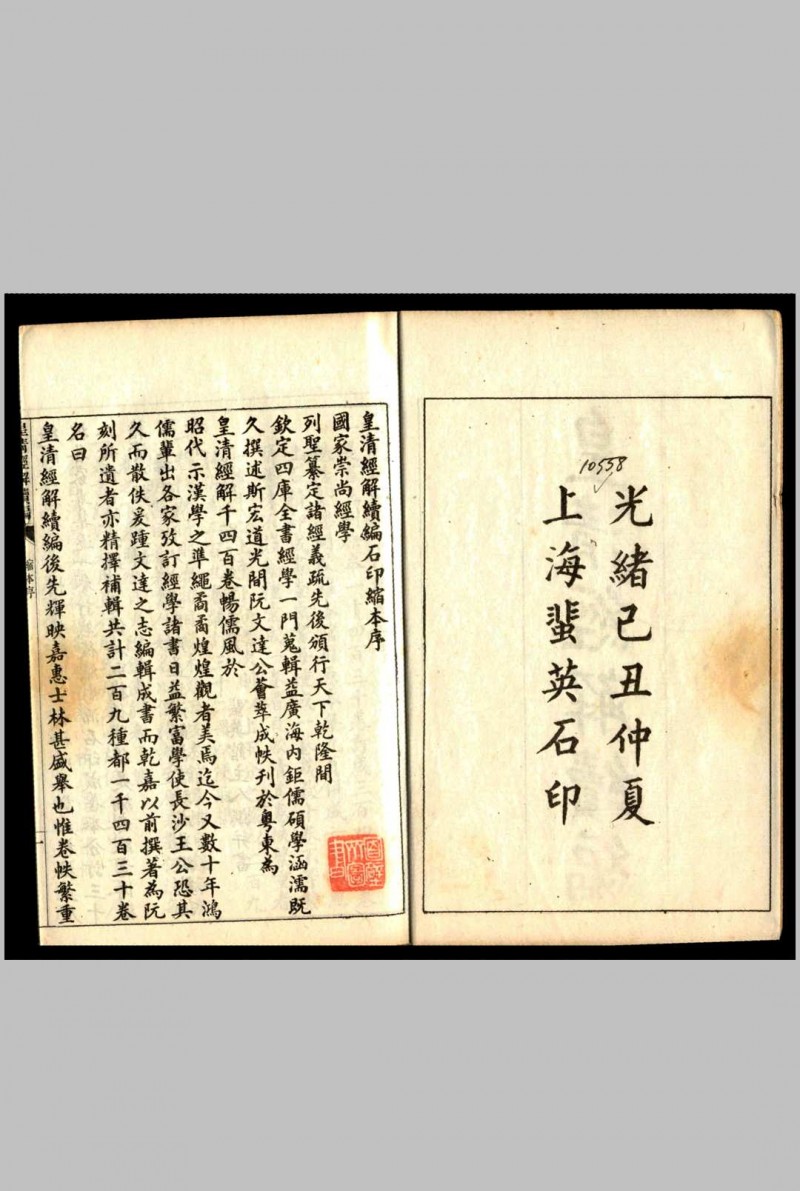 光緒己丑仲夏
上海蜚英石印
10558
皇清經解續編石印縮本序
國家崇尚經學
列聖纂定諸經義疏先後頒行天下乾隆間
欽定四庫全書經學一門蒐輯益廣海内鉅儒碩學涵濡既
久撰述斯宏道光間阮文達公薈萃成帙刊於粤東為
皇清經解千四百卷暢儒風於
昭代示漢學之準繩矞矞煌煌觀者美焉迄今又數十年鴻
儒輩出各家攷訂經學諸書日益繁富學使長沙王公恐其
久而散佚爰踵文達之志編輯成書而乾嘉以前撰著為阮
刻所遺者亦精擇補輯共計二百九種都一千四百三十卷
名曰
皇清經解續編後先輝映嘉惠士林甚盛舉也惟卷帙繁重
皇清經解續編
縮本序
一